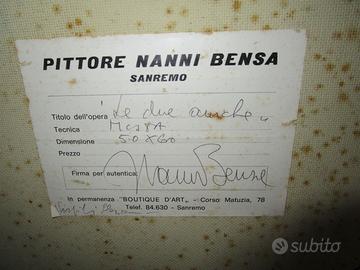 PITTORE NANNI BENSA
SANREMO
Titolo dell'opera "Le due amiche"
Tecnica MISTA
Dimensione 50X60
Prezzo
Firma per autentica: Nanni Bensa
In permanenza "BOUTIQUE D'ART" - Corso Matuzia, 78
Telef. 84.630 - Sanremo
subito